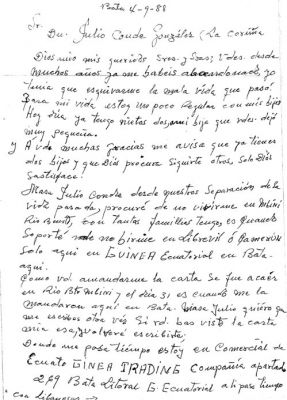 Bata 4-9-88
Sr.
Dn. Julio Conde Gonzálos (La coruña
Dios mio mis queridos Sres. y Sras; Vdes. desde
muchos años ya me habeis abandonado, yo
tenia que esquivarme la mala vida que pasó
Para mi vida estoy un poco Regular con mis hijos
Hoy dia ya tengo nietas dos, ami hija que vdes. dejó
muy pequeña.
y A vde muchas gracias me avisa que ya tienes
dos hijos y que Dios procura siguirte otros, Solo Dios
Sastisface!
Masa Julio Conde desde nuestros Separación de la
vida pasada, procuré de no vivirme en Mbini
Rio Benito, con tantas familias tengo, es Cuando
Soporté de no birme en Librevil ó Gamerún
Solo aqui en GUINEA Ecuatorial en Bata
aqui.
Como vol amandarme la carta se fue acáer
en Rio Bto Mbini y el dia 31 es cuando me la
mandaron aqui en Bata. Masa Julio quiero que
me escribes otra vés Si rd. bas viste la carta
mia es, volveré escribirte;
Donde me pasé tiempo estoy en Comercial de
Ecuato GINEA TRADING Compañia apartado
269 Bata Litoral G. Ecuatorial ali pasé tiempo
con